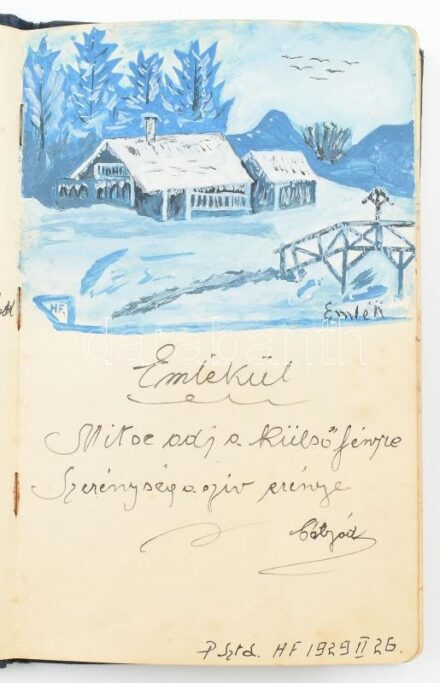 HF.
Emlék
Emlékül
Mitse adj a külső fényre
Szerénység a szív erénye
P Sztd. HF 1929 II 26.